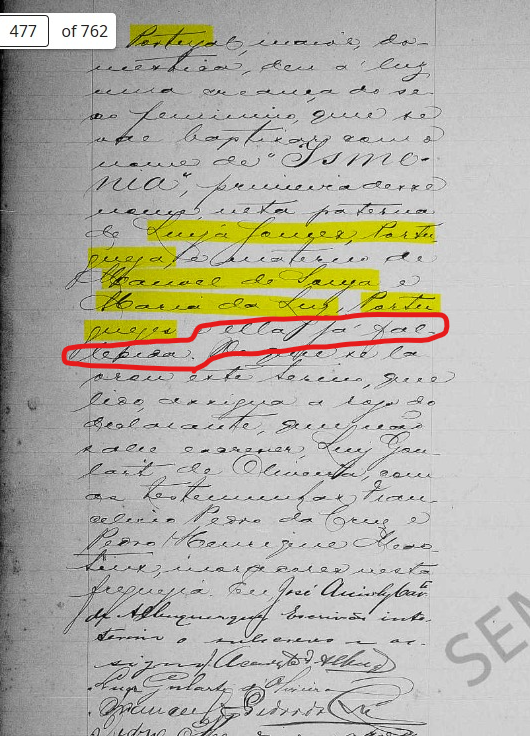 477 of 762
Portugal, maior, do-
mestica, deu á luz
uma creança do se-
xo feminino, que se
vae baptizar com o
nome de "ISME-
NIA", primeira desse
nome, neta paterna
de Luiza Gomez, Portu-
gueza, e materno de
Manoel de Souza e
Maria da Luz, Portu-
guezes ella já fal-
lecida. Do que se la
vrou este termo, que
lido, assigna a rogo do
declarante, que não
sabe escrever, Luiz Gou-
lart de Oliveira, com
as testemunhas Fran-
celicio Pedro da Cruz e
Pedro Henrique
moradores nesta
freguezia. Eu José
de Albuquerque Escrivão inte-
rino o subscrevo e as-
signo
Luiz Gularte de Oliveira
Pedro da Cruz
SEM